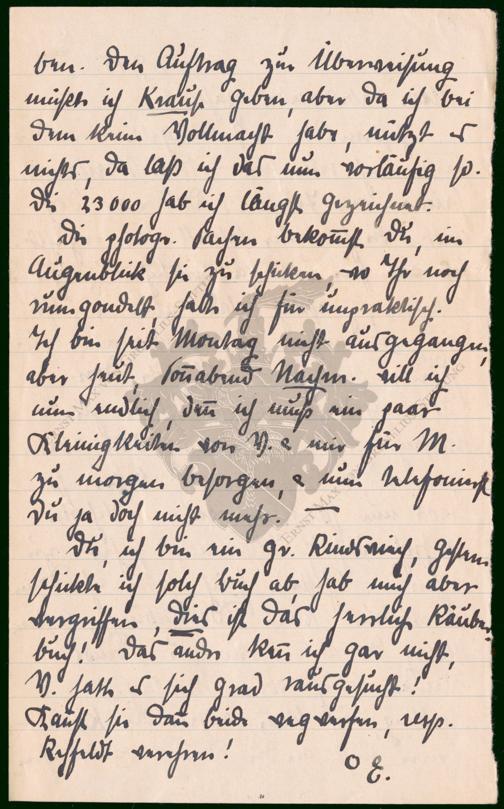 ben. Den Auftrag zur Überweisung
müßte ich Krause geben, aber da ich bei
dem keine Vollmacht habe, nützt es
nichts, da laß ich das nun vorläufig so.
Die 23000 hab ich längst gezeichnet.
Die photogr. Sachen bekommst Du, im
Augenblick sie zu schicken, wo Ihr noch
rumgondelt, halte ich für unpraktisch.
Ich bin seit Montag nicht ausgegangen,
aber heut, Sonnabend Nachm. will ich
nun endlich, denn ich muß ein paar
Kleinigkeiten von V. & mir für M.
zu morgen besorgen, & nun telefonierst
Du ja doch nicht mehr. —
Du, ich bin ein gr. Rindsviech, gestern
schickte ich solch Buch ab, hab mich aber
vergriffen, dies ist das herrliche Räuber-
buch! Das andre kenn ich gar nicht,
V. hatte es sich grad rausgesucht!
Kannst sie dann beide wegwerfen, resp.
verehren!